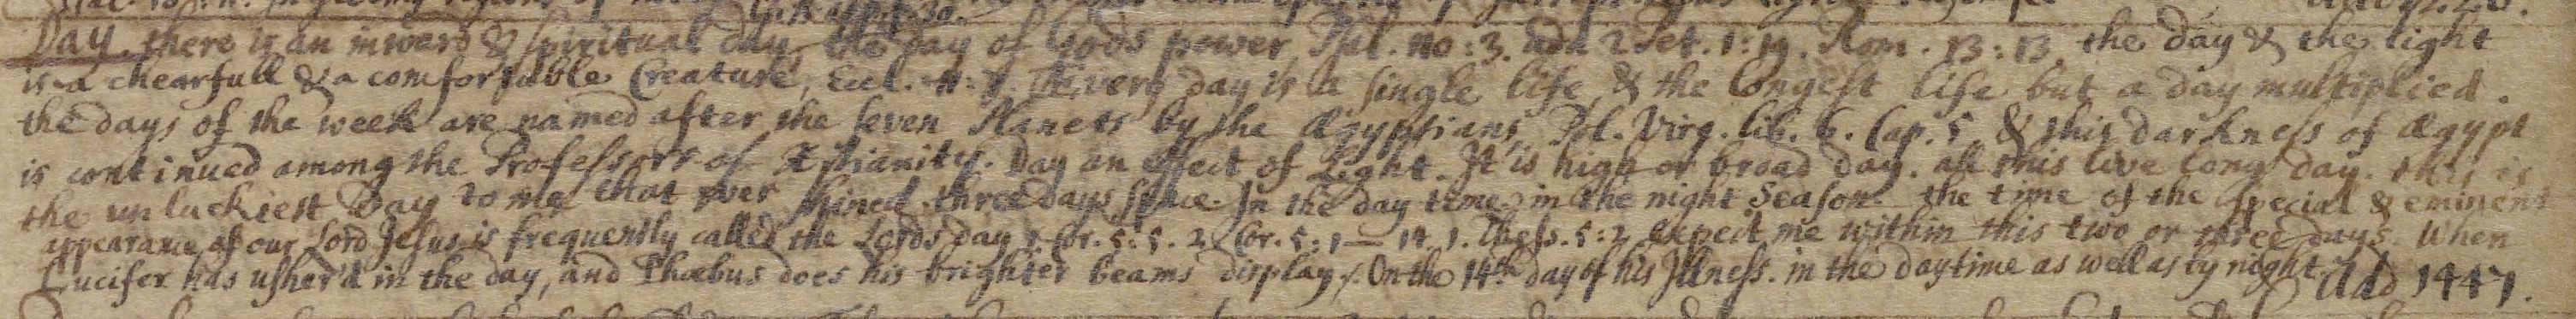 Day. there is an inward & spiritual day the day of Gods power, Psal. 110:3. and 2 Pet. 1:19. Rom. 13:13. the day & the light
is a chearfull & a comfortable Creature, Eccl. 11:7. Every day is a single life, & the longest life but a day multiplied.
the days of the week are named after the seven Planets by the Ægyptians, Pol. Virg. lib. 6. Cap. 5 & this darkness of Ægypt
is continued among the Professors of Xstianity. Day an effect of Light. It is high or broad day. all this live long day. this is
the unluckiest Day to me that ever shined. three days space. In the day time, in the night Season. the time of the special & eminent
appearance of our Lord Jesus is frequently called the Lords day 1. Cor. 5:5. 2. Cor. 5:1—14. 1. Thess. 5:2. expect me within this two or three days. When
Lucifer has usher'd in the day, and Phœbus does his brighter beams display. On the 14th day of his Illness. in the daytime as well as by night. Add 1447.